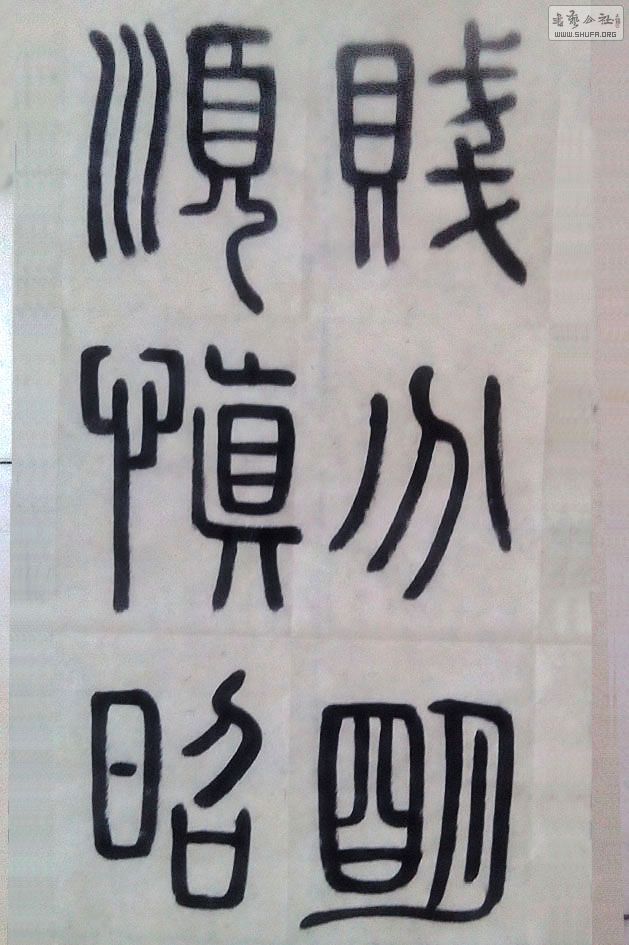 賤分明
順慎昭
書藝公社
WWW.SHUFA.ORG